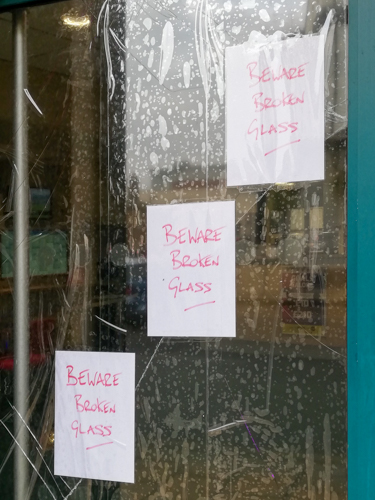 BEWARE
BROKEN
GLASS
BEWARE
BROKEN
GLASS
BEWARE
BROKEN
GLASS